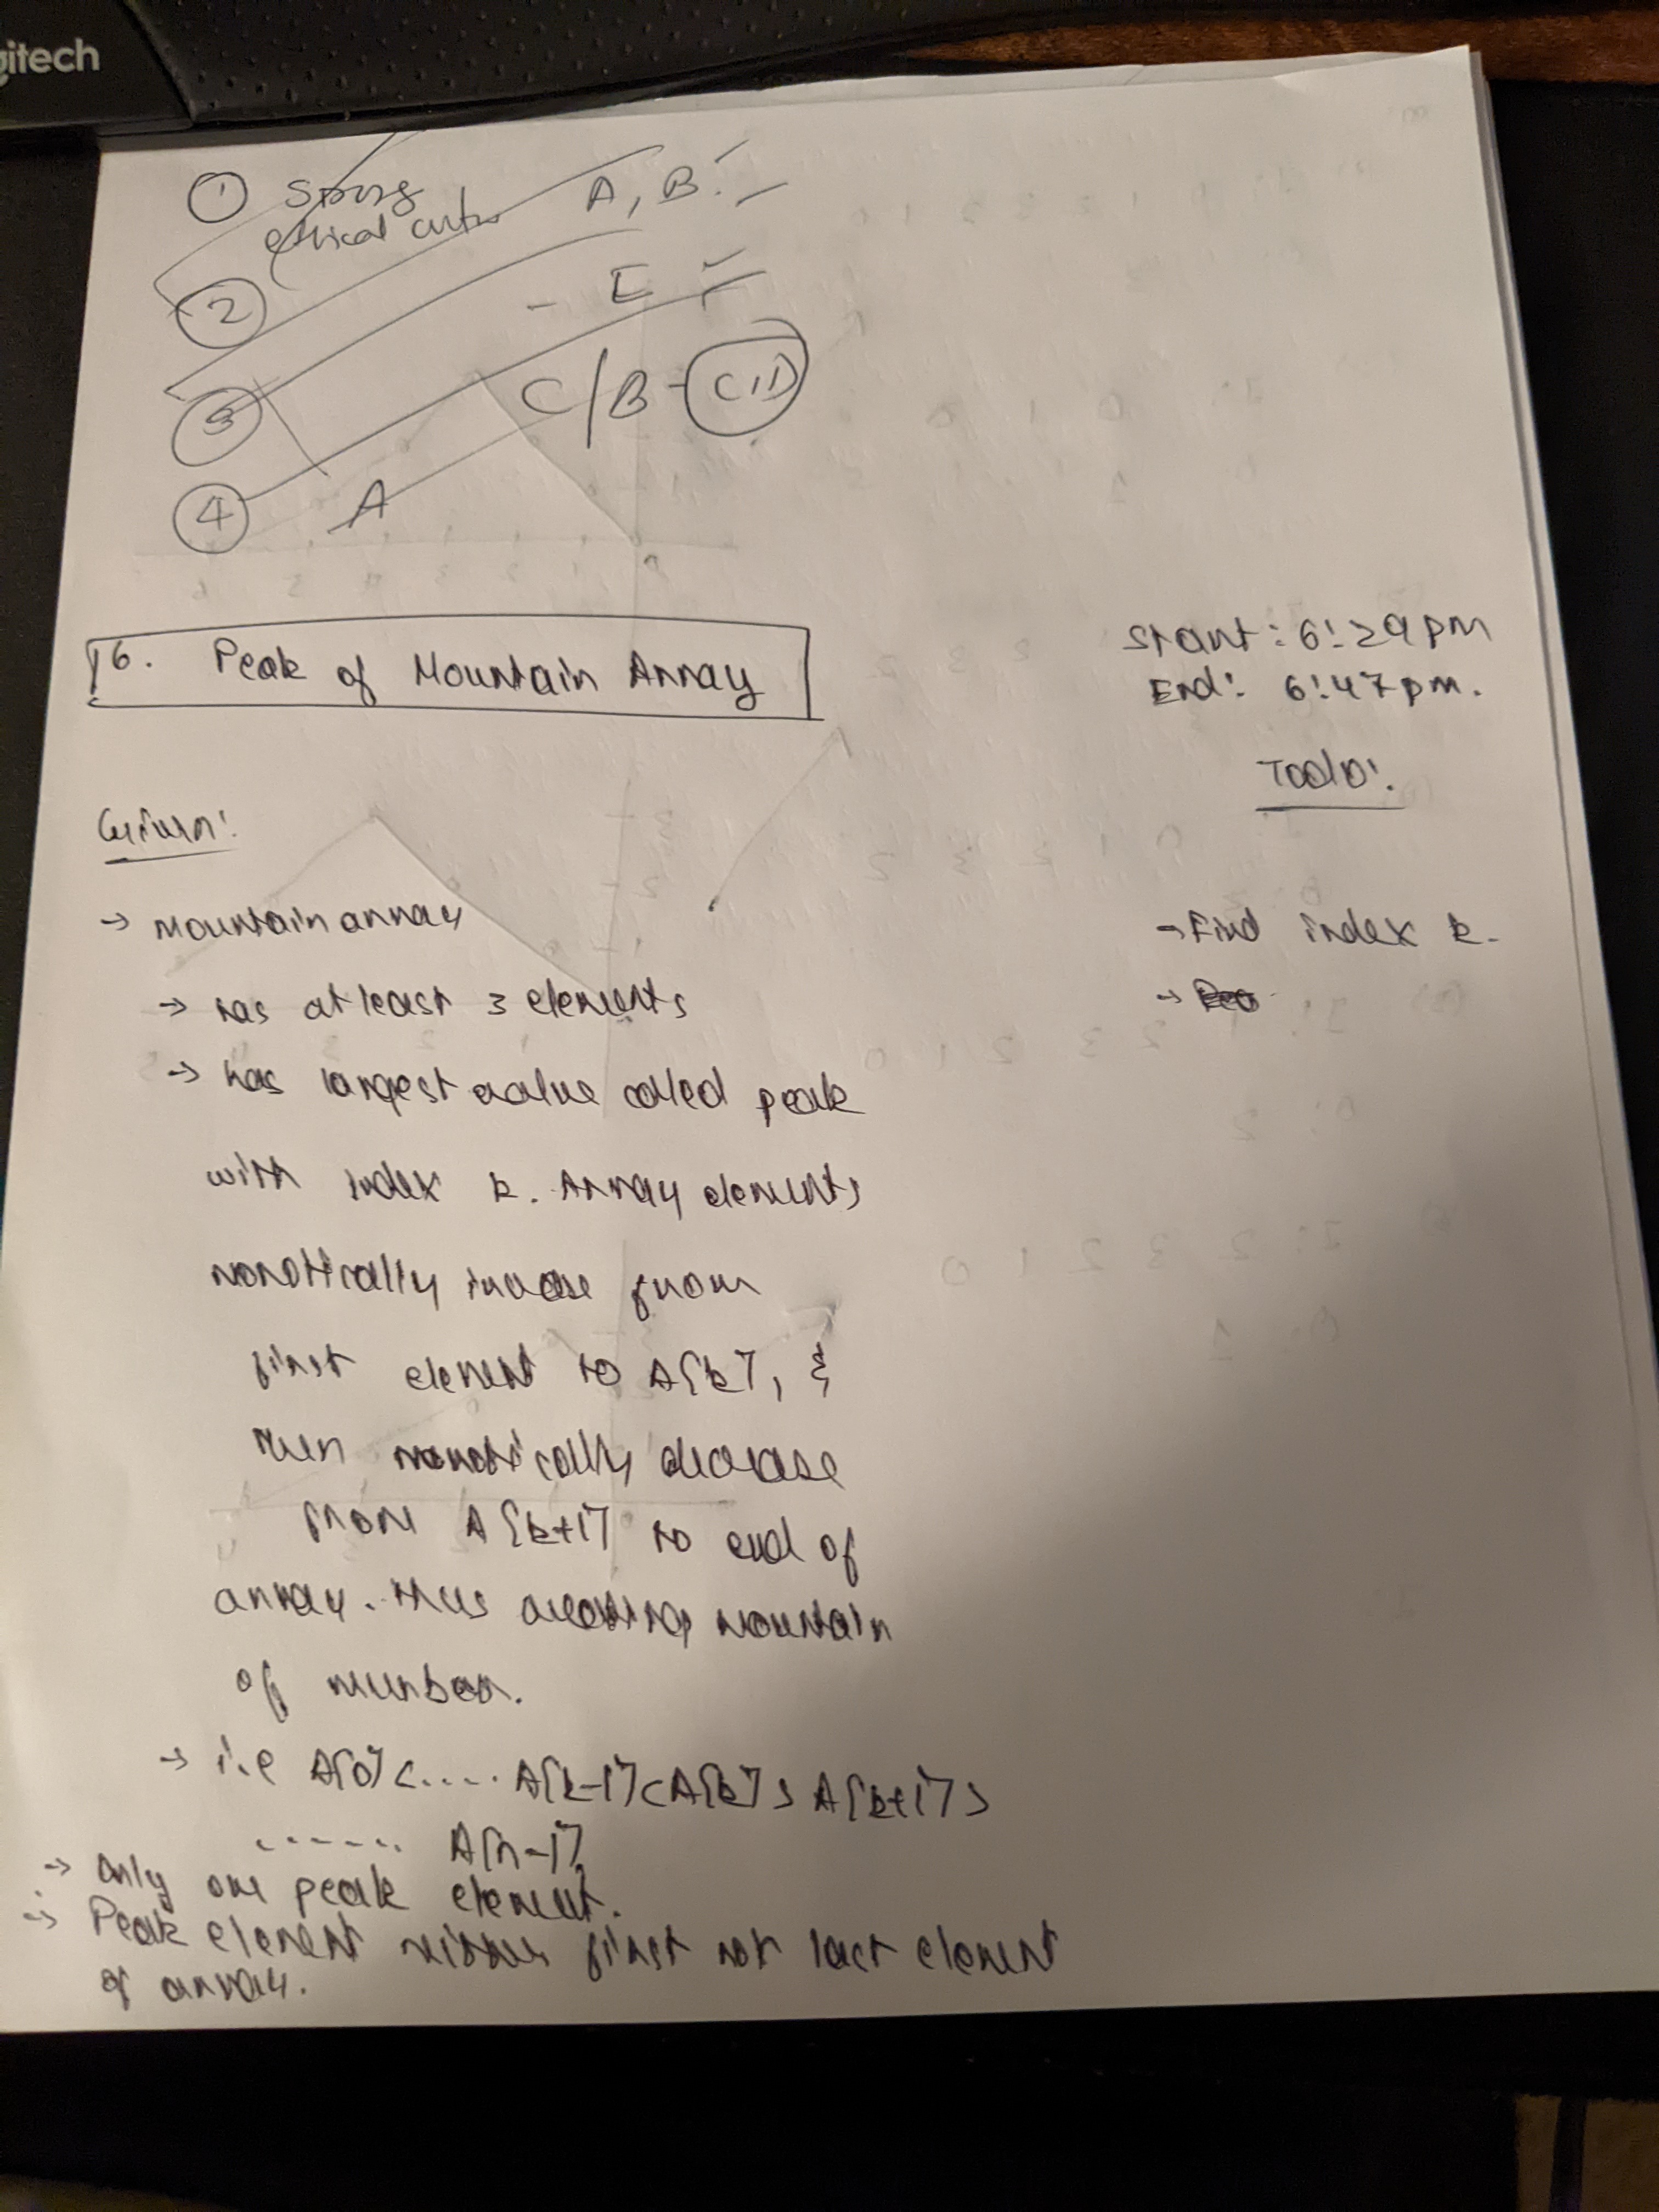 gitech
① Strong A, B.
ethical
② - E
③ C/B - CID
④ A
16. Peak of Mountain Array
Start: 6:29pm
End: 6:47pm.
Todo:
Given:
→ Mountain array
→ Find index k.
→ has at least 3 elements
→
→ has largest value called peak
with index k. Array elements
monotically increase from
first element to A[k], &
then monotically decrease
from A[k+1] to end of
array. thus creating mountain
of number.
→ i.e A[0] <..... A[k-1] < A[k] > A[k+1] >
...... A[n-1]
→ Only one peak element.
→ Peak element neither first nor last element
of array.